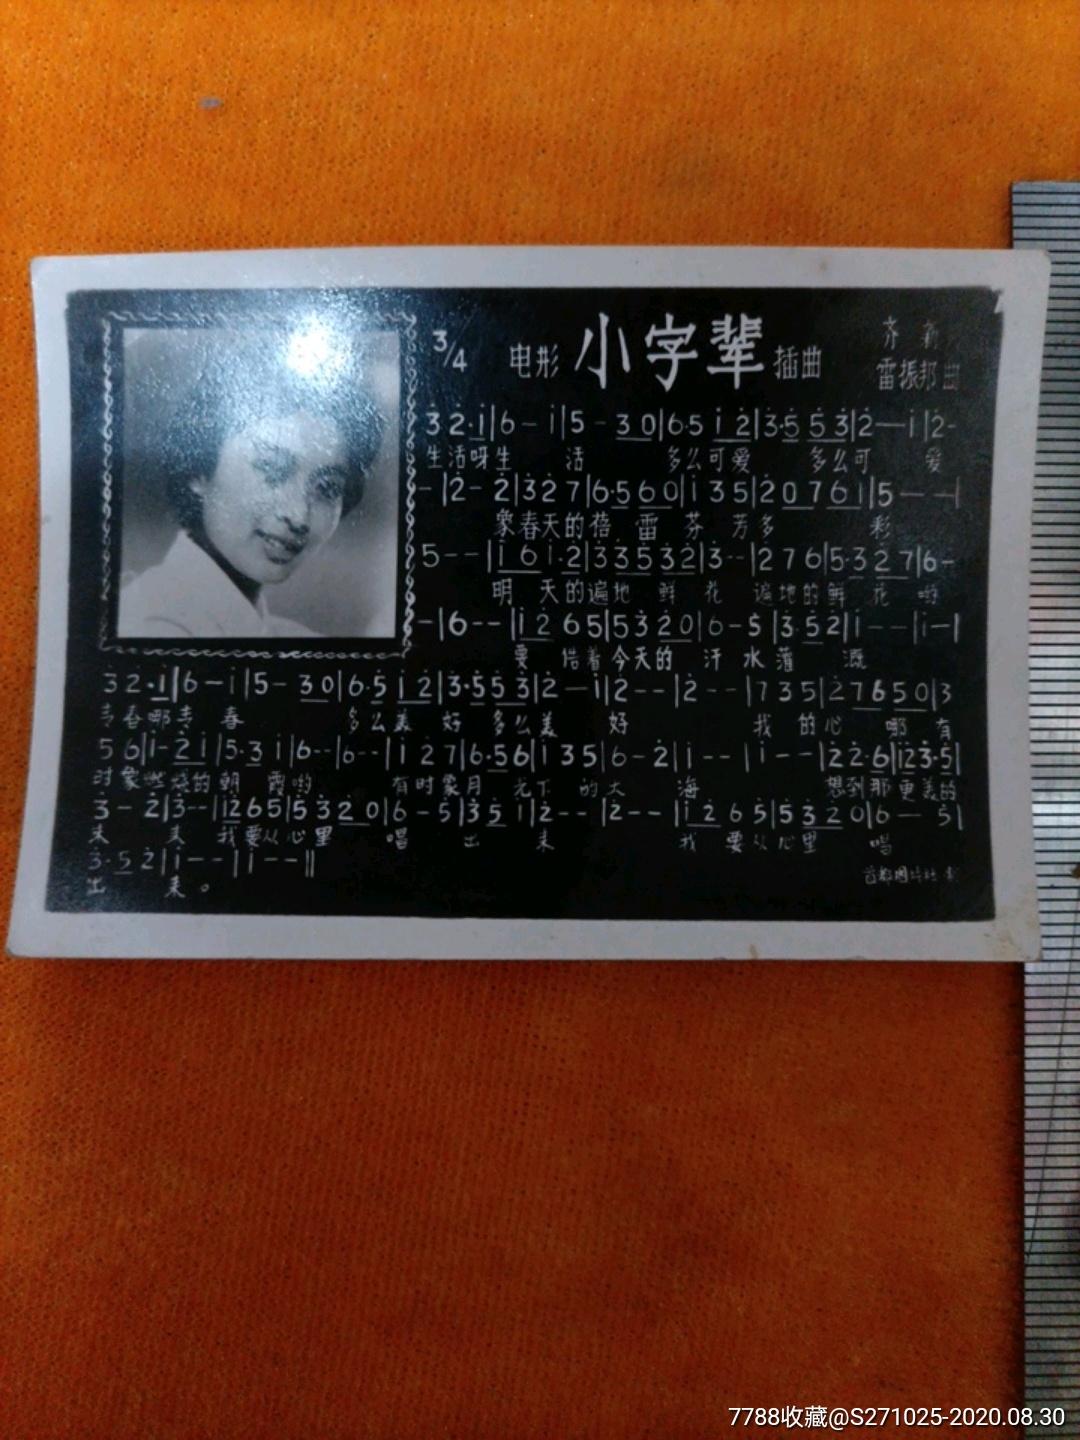 3/4 电影 小字辈 插曲
齐 新
雷振邦 曲
3 2·i|6 - i|5 - 3 0|6·5 i 2|3·5 5 3|2 — i|2-
生活呀生 活 多么可爱 多么可 爱
-|2- 2|3 2 7|6·5 6 0|i 3 5|2 0 7 6 i|5 - -|
象春天的蓓 雷 芬 芳多 彩
5 - -|i 6 i·2|3 3 5 3 2|3 - -|2 7 6|5·3 2 7|6-
明 天的遍地 鲜 花 遍地的鲜 花 哟
-|6 - -|i 2 6 5|5 3 2 0|6 - 5|3·5 2|i - -|i -|
要 借着今天的 汗 水 灌 溉
3 2·i|6 - i|5 - 3 0|6·5 i 2|3·5 5 3|2 — i|2 - -|2 - -|7 3 5|2 7 6 5 0|3
青春哪青 春 多么美 好 多么美 好 我 的心 哪 有
5 6|i· 2 i|5·3 i|6 - -|6 - -|i 2 7|6·5 6|i 3 5|6 - 2|i - -|i - -|2 2·6|i 2 3·5|
时象燃烧的朝 霞哟 有时象月 光下 的大 海 想到那更美的
3 - 2|3 - -|i 2 6 5|5 3 2 0|6 - 5|3 5 i|2 - -|2 - -|i 2 6 5|5 3 2 0|6 — 5|
未 来 我要从心里 唱 出 来 我 要从心里 唱
3·5 2|i - -|i - -‖
出 来。
首都图片社
7788收藏@S271025-2020.08.30